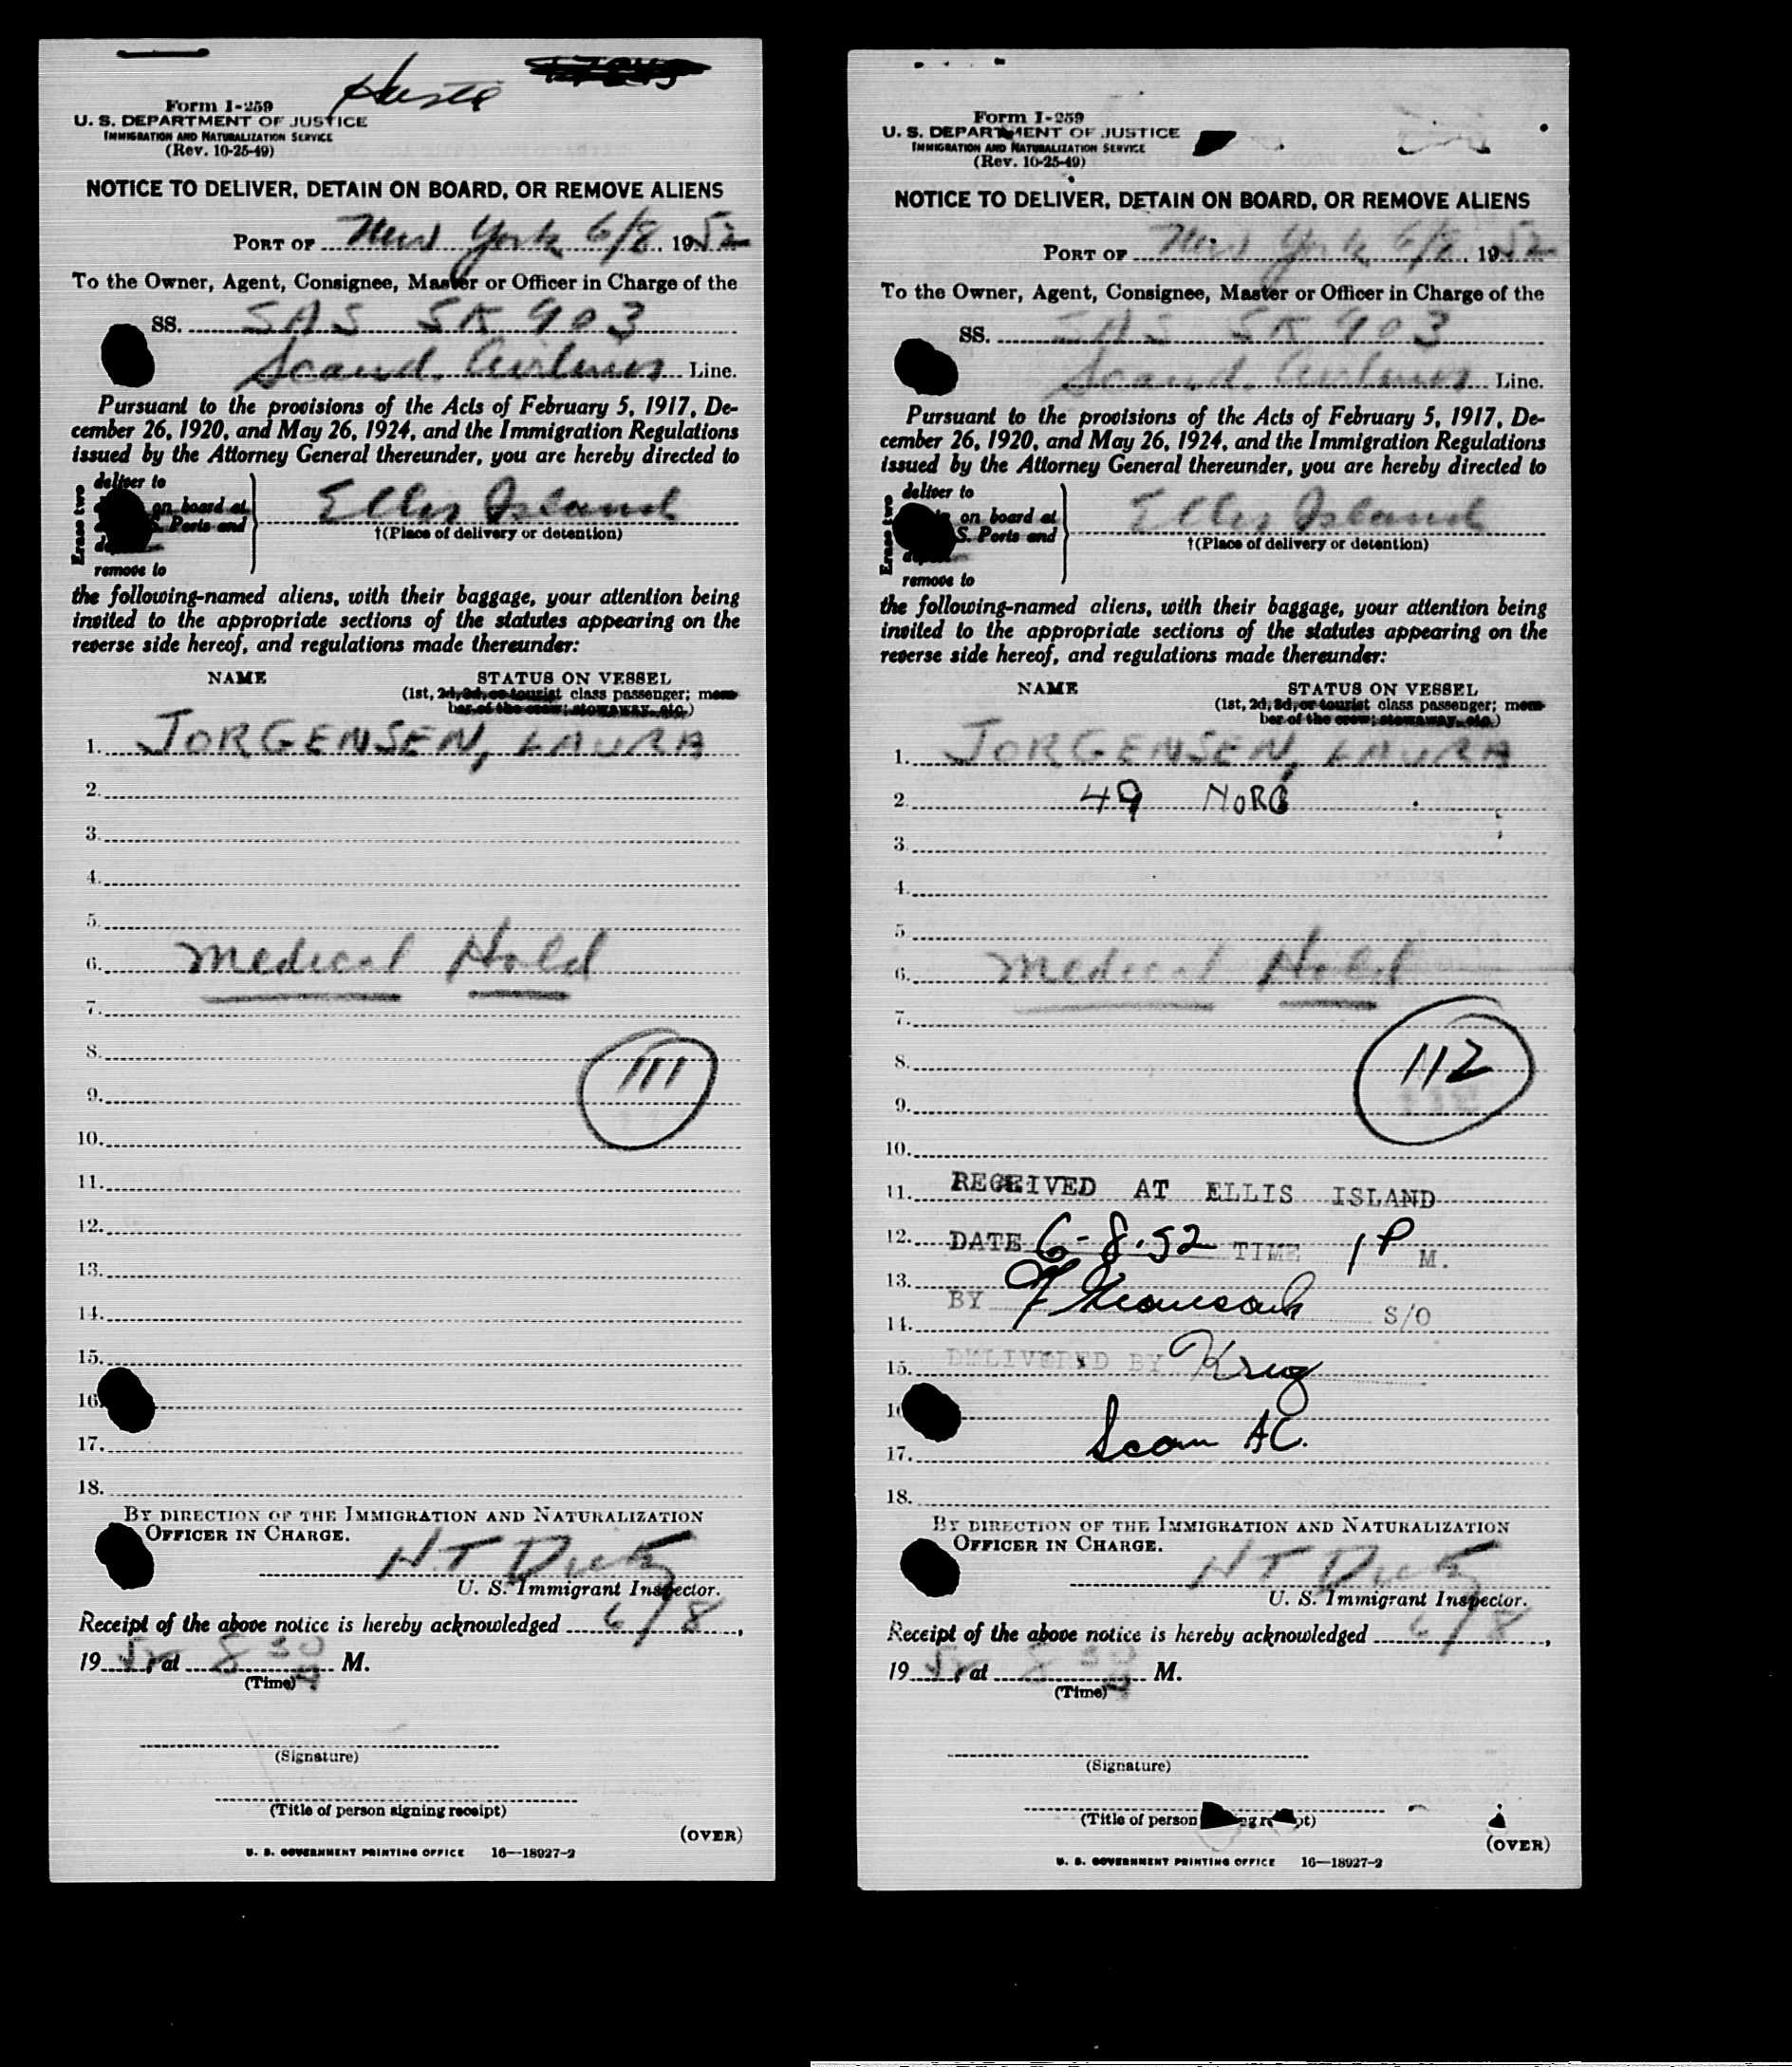 Form I-259
U. S. DEPARTMENT OF JUSTICE
IMMIGRATION AND NATURALIZATION SERVICE
(Rev. 10-25-49)
NOTICE TO DELIVER, DETAIN ON BOARD, OR REMOVE ALIENS
PORT OF New York 6/8, 1952
To the Owner, Agent, Consignee, Master or Officer in Charge of the
SS. SAS SK 903
Scand. Airlines Line.
Pursuant to the provisions of the Acts of February 5, 1917, De-
cember 26, 1920, and May 26, 1924, and the Immigration Regulations
issued by the Attorney General thereunder, you are hereby directed to
Erase two
deliver to
on board at
S. Ports and
remove to
Ellis Island
†(Place of delivery or detention)
the following-named aliens, with their baggage, your attention being
invited to the appropriate sections of the statutes appearing on the
reverse side hereof, and regulations made thereunder:
NAME STATUS ON VESSEL
(1st, 2d, 3d, or tourist class passenger; mem-
ber of the crew; stowaway, etc.)
1. JORGENSEN, LAURA
2.
3.
4.
5.
6. Medical Hold
7.
8. 111
9.
10.
11.
12.
13.
14.
15.
16.
17.
18.
BY DIRECTION OF THE IMMIGRATION AND NATURALIZATION
OFFICER IN CHARGE.
H.T.
U. S. Immigrant Inspector.
Receipt of the above notice is hereby acknowledged 6/8,
1952, at 8 30 A M.
(Time)
(Signature)
(Title of person signing receipt)
(OVER)
U. S. GOVERNMENT PRINTING OFFICE 16—18927-2
Form I-259
U. S. DEPARTMENT OF JUSTICE
IMMIGRATION AND NATURALIZATION SERVICE
(Rev. 10-25-49)
NOTICE TO DELIVER, DETAIN ON BOARD, OR REMOVE ALIENS
PORT OF New York 6/8, 1952
To the Owner, Agent, Consignee, Master or Officer in Charge of the
SS. SAS SK 903
Scand. Airlines Line.
Pursuant to the provisions of the Acts of February 5, 1917, De-
cember 26, 1920, and May 26, 1924, and the Immigration Regulations
issued by the Attorney General thereunder, you are hereby directed to
Erase two
deliver to
on board at
S. Ports and
remove to
Ellis Island
†(Place of delivery or detention)
the following-named aliens, with their baggage, your attention being
invited to the appropriate sections of the statutes appearing on the
reverse side hereof, and regulations made thereunder:
NAME STATUS ON VESSEL
(1st, 2d, 3d, or tourist class passenger; mem-
ber of the crew; stowaway, etc.)
1. JORGENSEN, LAURA
2. 49 NORG
3.
4.
5.
6. Medical Hold
7.
8. 112
9.
10.
11. RECEIVED AT ELLIS ISLAND
12. DATE 6-8-52 TIME 1 P M.
13.
BY S/O
14.
15. DELIVERED BY Krug
16
17. Scan AC.
18.
BY DIRECTION OF THE IMMIGRATION AND NATURALIZATION
OFFICER IN CHARGE.
HT
U. S. Immigrant Inspector.
Receipt of the above notice is hereby acknowledged 6/8,
1952, at 8 30 A M.
(Time)
(Signature)
(Title of person
(OVER)
U. S. GOVERNMENT PRINTING OFFICE 16—18927-2